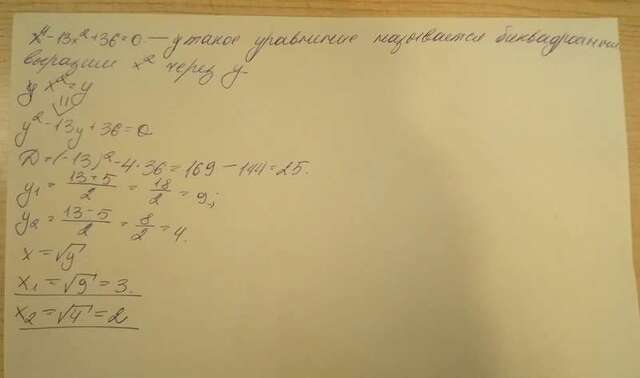 x⁴ - 13x² + 36 = 0 — такое уравнение называется биквадратным
выразим x² через y.
x² = y
y² - 13y + 36 = 0
D = (-13)² - 4 · 36 = 169 - 144 = 25.
y₁ = (13+5)/2 = 18/2 = 9;
y₂ = (13-5)/2 = 8/2 = 4.
x = √y
x₁ = √9 = 3.
x₂ = √4 = 2